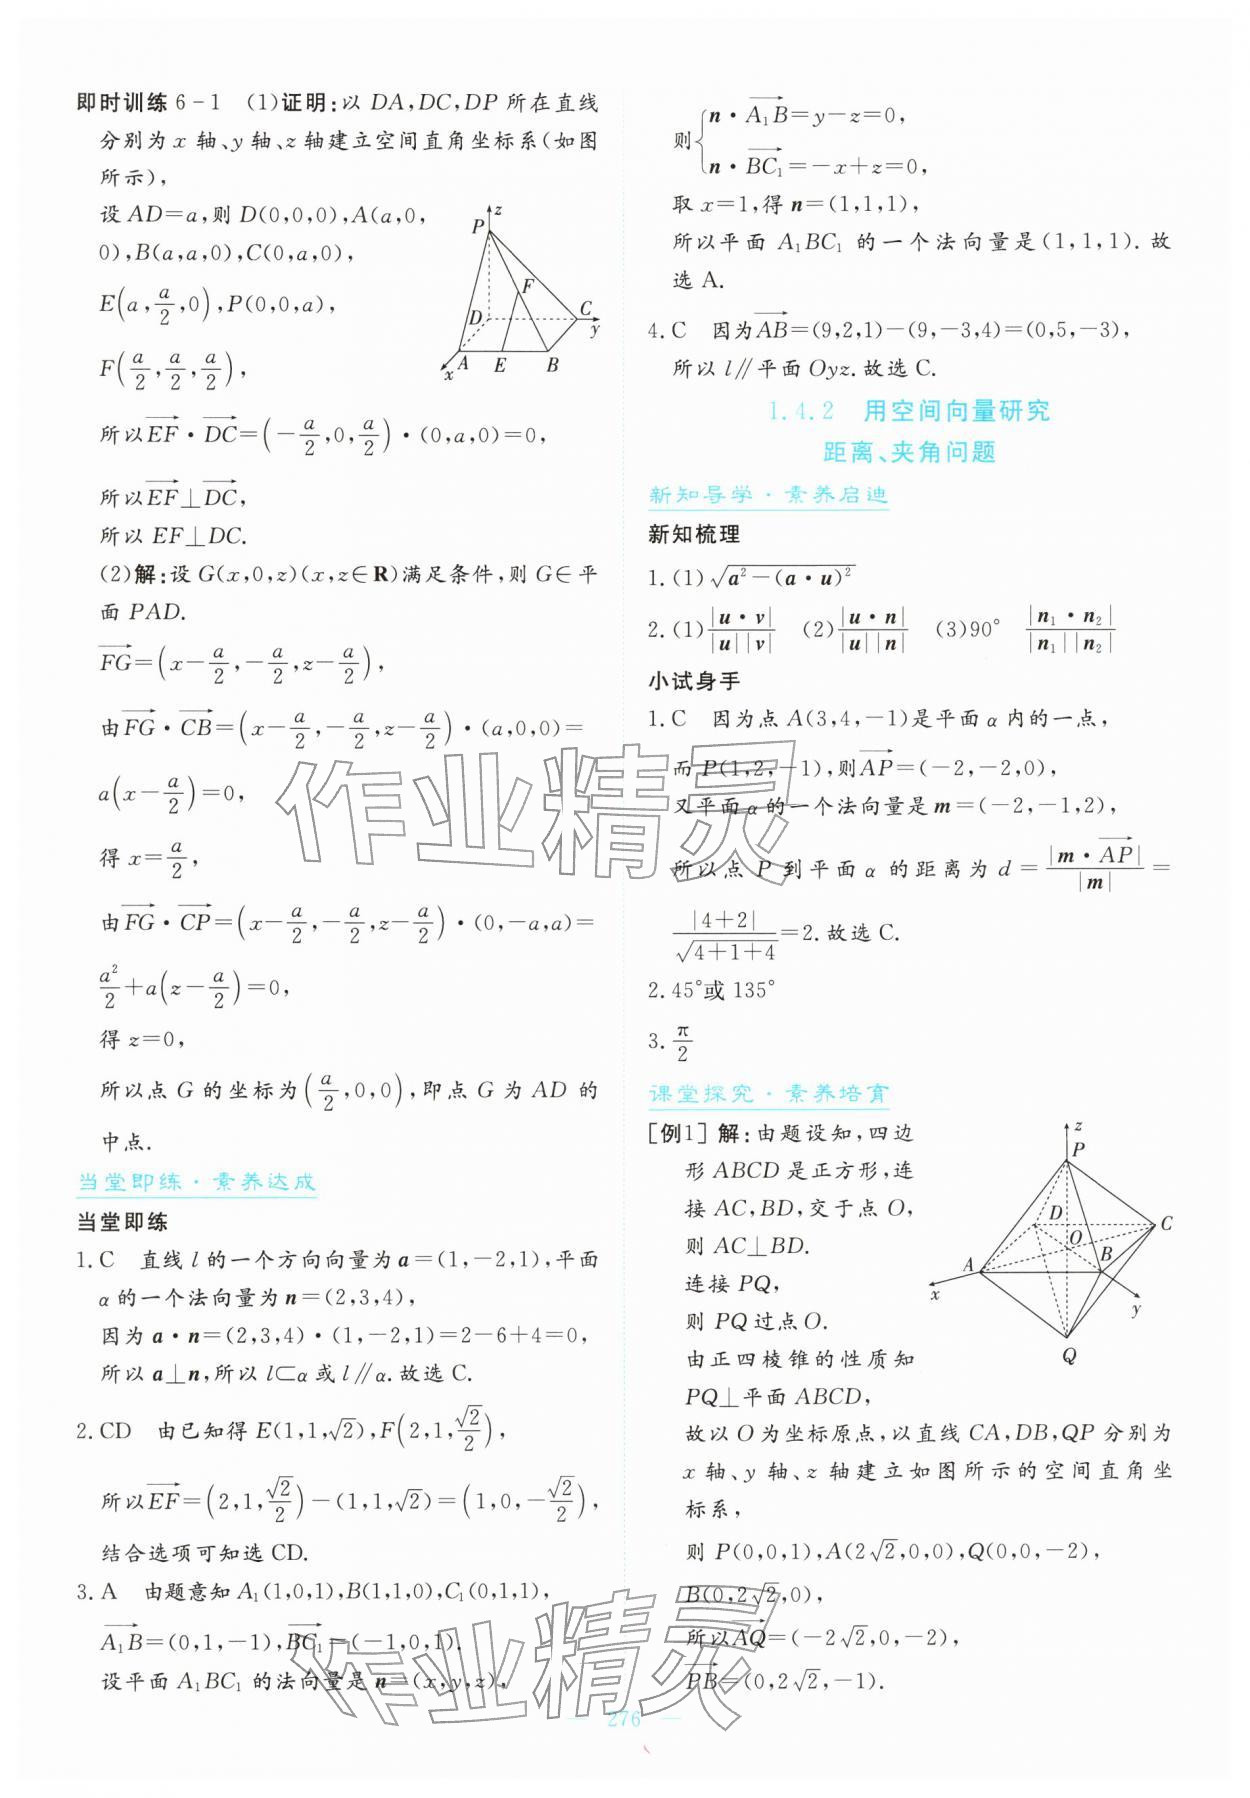 即时训练 6-1　(1)证明:以 DA,DC,DP 所在直线
分别为 x 轴、y 轴、z 轴建立空间直角坐标系(如图
所示),
设 AD=a,则 D(0,0,0),A(a,0,
0),B(a,a,0),C(0,a,0),
E(a,a/2,0),P(0,0,a),
F(a/2,a/2,a/2),
z
P
F
D
C
y
A
E
B
x
所以$\overrightarrow{EF}$·$\overrightarrow{DC}$=(-a/2,0,a/2)·(0,a,0)=0,
所以$\overrightarrow{EF}$⊥$\overrightarrow{DC}$,
所以 EF⊥DC.
(2)解:设 G(x,0,z)(x,z∈R)满足条件,则 G∈平
面 PAD.
$\overrightarrow{FG}$=(x-a/2,-a/2,z-a/2),
由$\overrightarrow{FG}$·$\overrightarrow{CB}$=(x-a/2,-a/2,z-a/2)·(a,0,0)=
a(x-a/2)=0,
得 x=a/2,
由$\overrightarrow{FG}$·$\overrightarrow{CP}$=(x-a/2,-a/2,z-a/2)·(0,-a,a)=
a²/2+a(z-a/2)=0,
得 z=0,
所以点 G 的坐标为(a/2,0,0),即点 G 为 AD 的
中点.
当堂即练·素养达成
当堂即练
1.C　直线 l 的一个方向向量为 a=(1,-2,1),平面
α的一个法向量为 n=(2,3,4),
因为 a·n=(2,3,4)·(1,-2,1)=2-6+4=0,
所以 a⊥n,所以 l⊂α或 l∥α.故选 C.
2.CD　由已知得 E(1,1,√2),F(2,1,√2/2),
所以$\overrightarrow{EF}$=(2,1,√2/2)-(1,1,√2)=(1,0,-√2/2),
结合选项可知选 CD.
3.A　由题意知 A₁(1,0,1),B(1,1,0),C₁(0,1,1),
$\overrightarrow{A₁B}$=(0,1,-1),$\overrightarrow{BC₁}$=(-1,0,1).
设平面 A₁BC₁ 的法向量是 n=(x,y,z),
则{n·$\overrightarrow{A₁B}$=y-z=0,
n·$\overrightarrow{BC₁}$=-x+z=0,
取 x=1,得 n=(1,1,1),
所以平面 A₁BC₁ 的一个法向量是(1,1,1).故
选 A.
4.C　因为$\overrightarrow{AB}$=(9,2,1)-(9,-3,4)=(0,5,-3),
所以 l∥平面 Oyz.故选 C.
1.4.2　用空间向量研究
距离、夹角问题
新知导学·素养启迪
新知梳理
1.(1)√(a²-(a·u)²)
2.(1)|u·v|/|u||v|　(2)|u·n|/|u||n|　(3)90°　|n₁·n₂|/|n₁||n₂|
小试身手
1.C　因为点 A(3,4,-1)是平面 α 内的一点,
而 P(1,2,-1),则$\overrightarrow{AP}$=(-2,-2,0),
又平面 α 的一个法向量是 m=(-2,-1,2),
所以点 P 到平面 α 的距离为 d=|m·$\overrightarrow{AP}$|/|m|=
|4+2|/√(4+1+4)=2.故选 C.
2.45°或 135°
3.π/2
课堂探究·素养培育
[例1] 解:由题设知,四边
形 ABCD 是正方形,连
接 AC,BD,交于点 O,
则 AC⊥BD.
连接 PQ,
则 PQ 过点 O.
由正四棱锥的性质知
PQ⊥平面 ABCD,
z
P
D
C
O
A
B
x
y
Q
故以 O 为坐标原点,以直线 CA,DB,QP 分别为
x 轴、y 轴、z 轴建立如图所示的空间直角坐
标系,
则 P(0,0,1),A(2√2,0,0),Q(0,0,-2),
B(0,2√2,0),
所以$\overrightarrow{AQ}$=(-2√2,0,-2),
$\overrightarrow{PB}$=(0,2√2,-1).
276
作业精灵
作业精灵